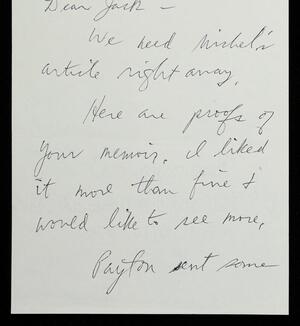 Dear Jack –
We need Michel's
article right away.
Here are proofs of
your memoir. I liked
it more than fine &
would like to see more.
Payton sent some